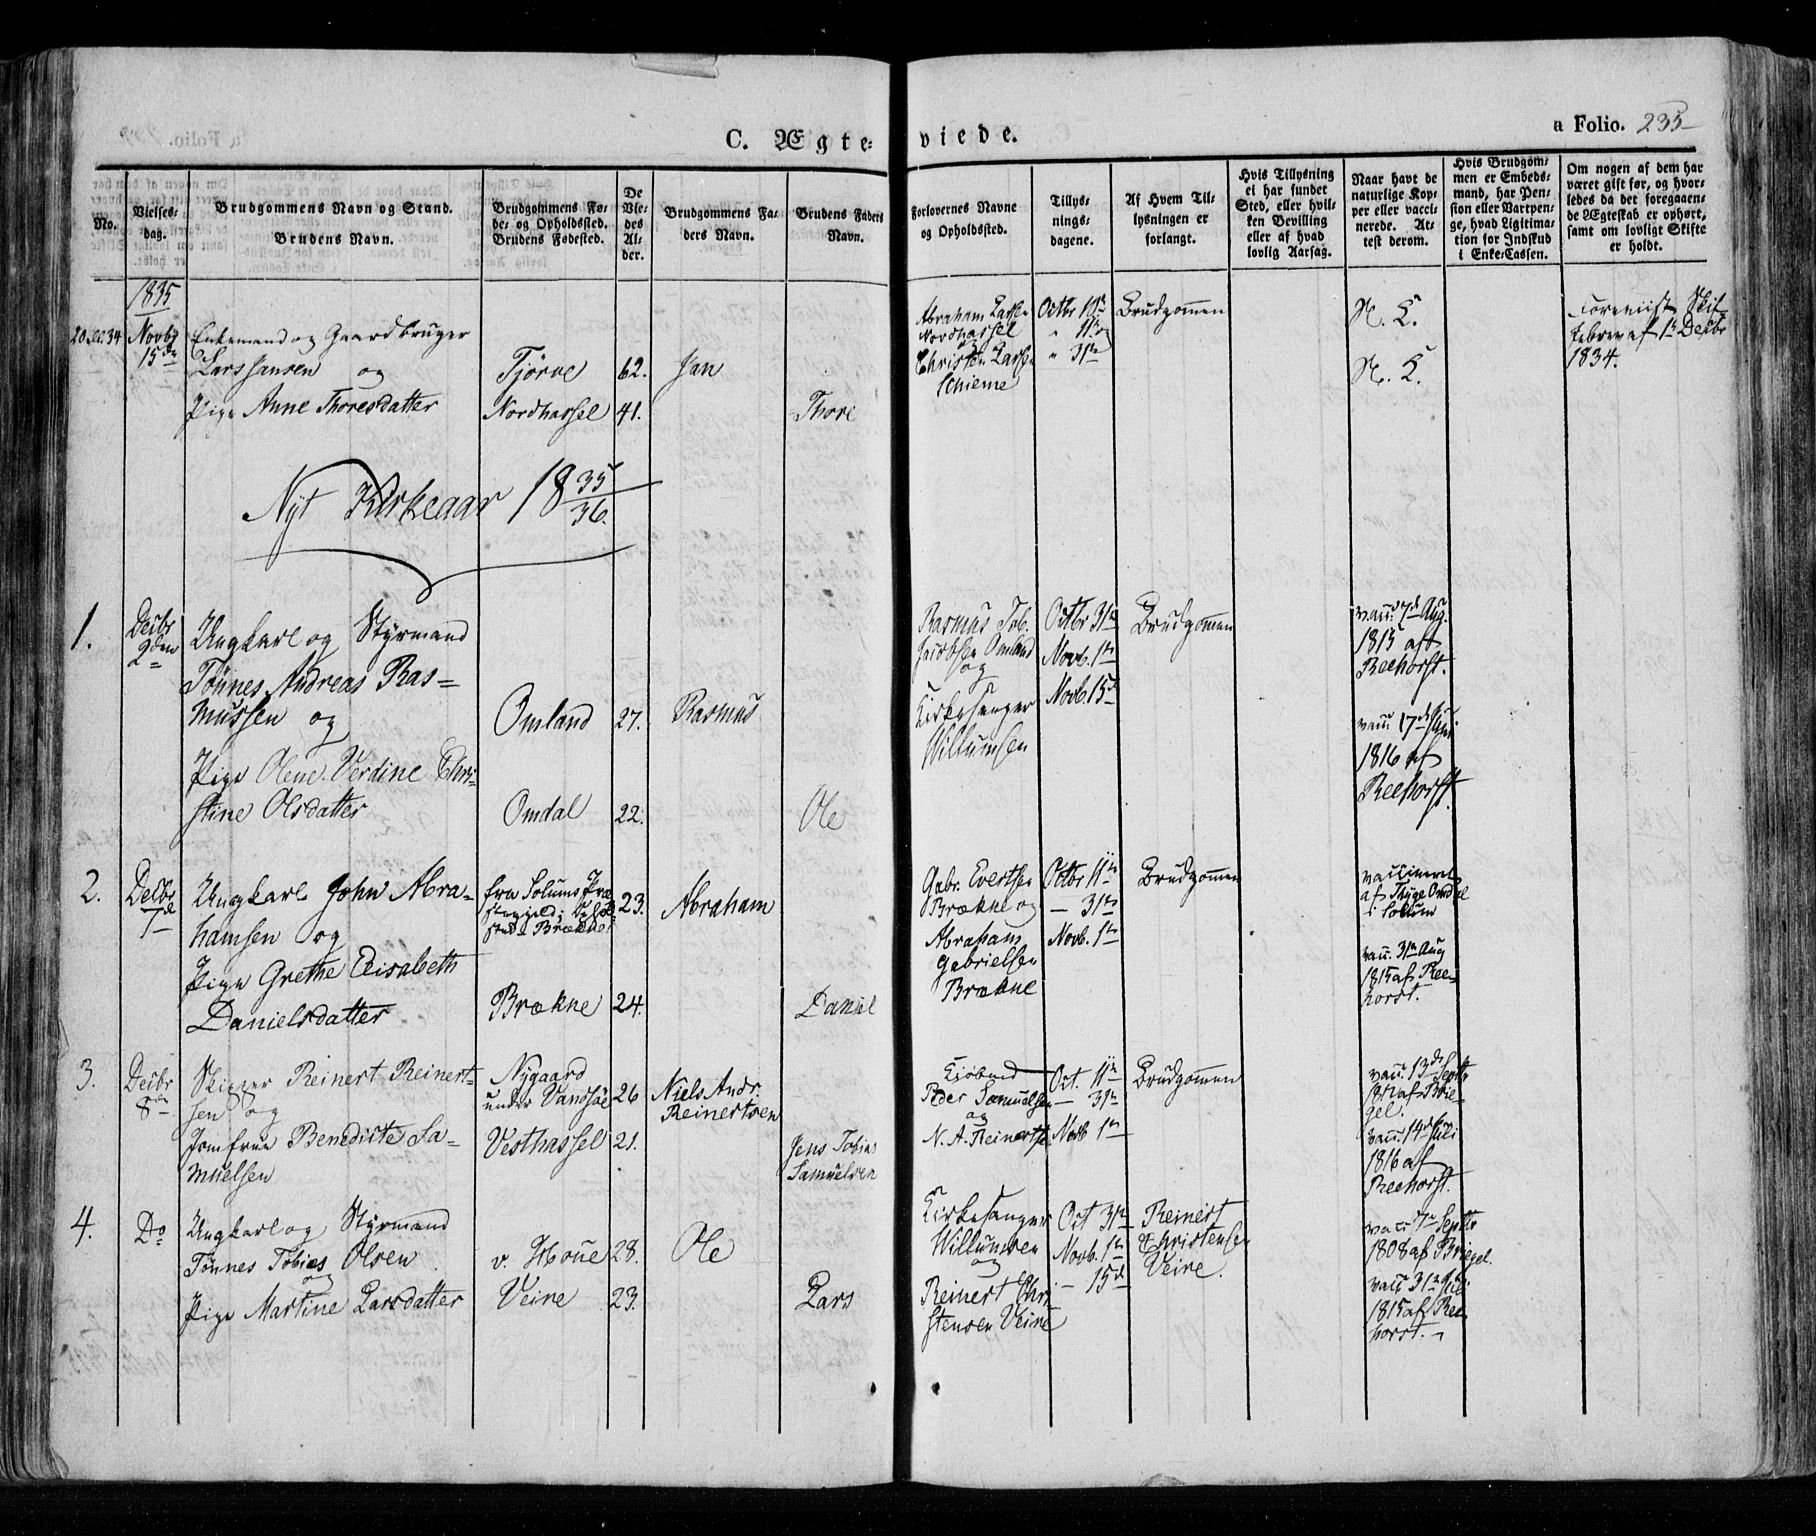 C. Ægte-
viede.
a Folio. 235
No.
Vielses-
dag.
Brudgommens Navn og Stand.
Brudens Navn.
Brudgommens Fø-
de- og Opholdssted.
Brudens Fødested.
De
Vie-
des
Al-
der.
Brudgommens Fa-
ders Navn.
Brudens Faders
Navn.
Forlovernes Navne
og Opholdssted.
Tillys-
nings-
dagene.
Af Hvem Til-
lysningen er
forlangt.
Hvis Tillysning
ei har fundet
Sted, eller hvil-
ken Bevilling
eller af hvad
lovlig Aarsag.
Naar havt de
naturlige Kop-
per eller vacci-
nerede. At-
test derom.
Hvis Brudgom-
men er Embeds-
mand, har Pen-
sion eller Vartpen-
ge, hvad Legitima-
tion for Indskud
i Enke-Cassen.
Om nogen af dem har
været gift før, og hvor-
ledes da det foregaaen-
de Ægteskab er ophørt,
samt om lovligt Skifte
er holdt.
1835
Novbr
15de
Enkemand og Gaardbruger
Lars Jansen og
Pige Anne Thoresdatter
Tjörve
Nordhassel
62.
41.
Jan
Thore
Abraham Larsen
Nordhassel
og
Christen Larsen
Schieme
Octbr 18de
" 11te og
" 31te
Brudgommen
N. K.
N. K.
Foreviist Skif-
tebrev af 1ste Decbr
1834.
Nyt Kirkeaar 1835/36.
1.
Decbr
2den
Ungkarl og Styrmand
Tönnes Andreas Ras-
mussen og
Pige Olene Verdine Chri-
stine Olsdatter
Omland
Omdal
27.
22.
Rasmus
Ole
Rasmus Tob.
Jacobsen Omland
og
Kirkesanger
Willumsen
Octbr 31te
Novb. 1te
Novb. 15de
Brudgommen
vacc. 7de Aug.
1815 af
Reehorst.
vacc. 17de Juni
1816 af
Reehorst.
2.
Decbr
7de
Ungkarl John Abra-
hamsen og
Pige Grethe Elisabeth
Danielsdatter
fra Solums Præ-
stegjeld;
Brækne
Brækne
23.
24.
Abraham
Daniel
Gabr. Evertsen
Brækne og
Abraham
Gabrielsen
Brækne
Octbr 11te
— 31te
Novb. 1te
Brudgommen
vaccineret
af Thyge
i Solum
vacc. 31te Aug
1815 af Ree-
horst.
3.
Decbr
8de
Skipper Reinert Reinert-
sen og
Jomfrue Benedicte Sa-
muelsen
Nygaard
under Vandsöe
Vesthassel
26
21.
Niels Andr.
Reinertsen
Jens Tobias
Samuelsen
Peder Samuelsen
og
N. A. Reinertsen
Oct. 11te
— 31te
Novb 1te
Brudgommen
vacc. 13de Septbr
af Brie-
gel.
vacc. 14de Juli
1816 af
Reehorst.
4.
Do
Ungkarl og Styrmand
Tönnes Tobias Olsen
og
Pige Martine Larsdatter
v. Houe
Veire
28.
23.
Ole
Lars
Kirkesanger
Willumsen
og
Reinert Chri-
stensen Veire
Oct 31te
Novb. 1te
— 15de
Reinert
Christensen
Veire.
vacc. 7de Septbr
1808 af Briegel.
vacc. 31te Juli
1815 af Ree-
horst.